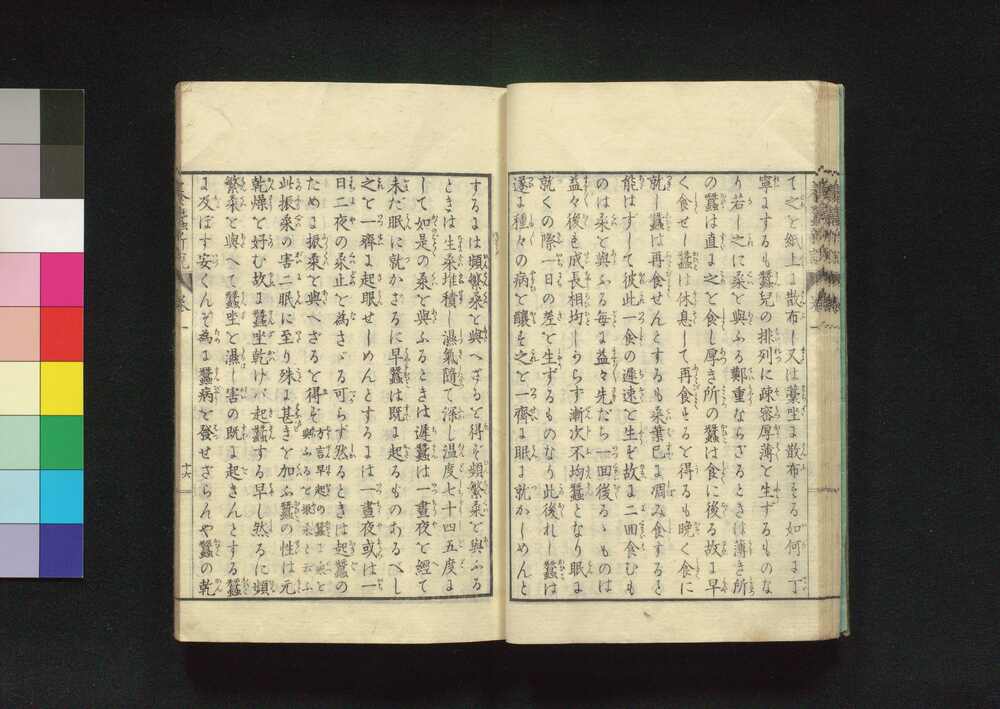 て之を紙上に散布し又は藁坐に散布する如何に丁
寧にするも蠶兒の排列に疎密厚薄を生ずるものな
り若し之に桑を與ふる鄭重ならざるときは薄き所
の蠶は直に之を食し厚き所の蠶は食に後る故に早
く食せし蠶は休息して再食することを得るも晩く食に
就し蠶は再食せんとするも桑葉已に凋み食すると
能はずして彼此一食の遲速を生ず故に二回食むも
のは桑を與ふる毎に益々先だち一回後るゝものは
益々後き成長相均しからず漸次不均蠶となり眠に
就くの際一日の差を生ずるものなり此後れし蠶は
遂に種々の病を釀す之を一齊に眠に就かしめんと
するには頻繁桑を與へざるを得ず頻繁桑を與ふる
ときは生桑堆積し濕氣隨て深し温度七十四五度に
して如是の桑を與ふるときは遲蠶は一晝夜を經て
未だ眠に就かざるに早蠶は既に起るものあるべし
之を一齊に起眠せしめんとするには一晝夜或は一
日二夜の桑止を為さゞる可らず然るときは起蠶の
ために振桑を與へざるを得ず 方言早起の蠶に桑を與ふるを振桑と云ふ
此振桑の害二眠に至り殊に甚きを加ふ蠶の性は元
乾燥を好む故に蠶坐乾けば起蠶する早し然るに頻
繁桑を與へて蠶坐を濕し害の既に起きんとする蠶
に及ぼす安くんぞ為に蠶病を發せざらんや蠶の乾
卷一
十六